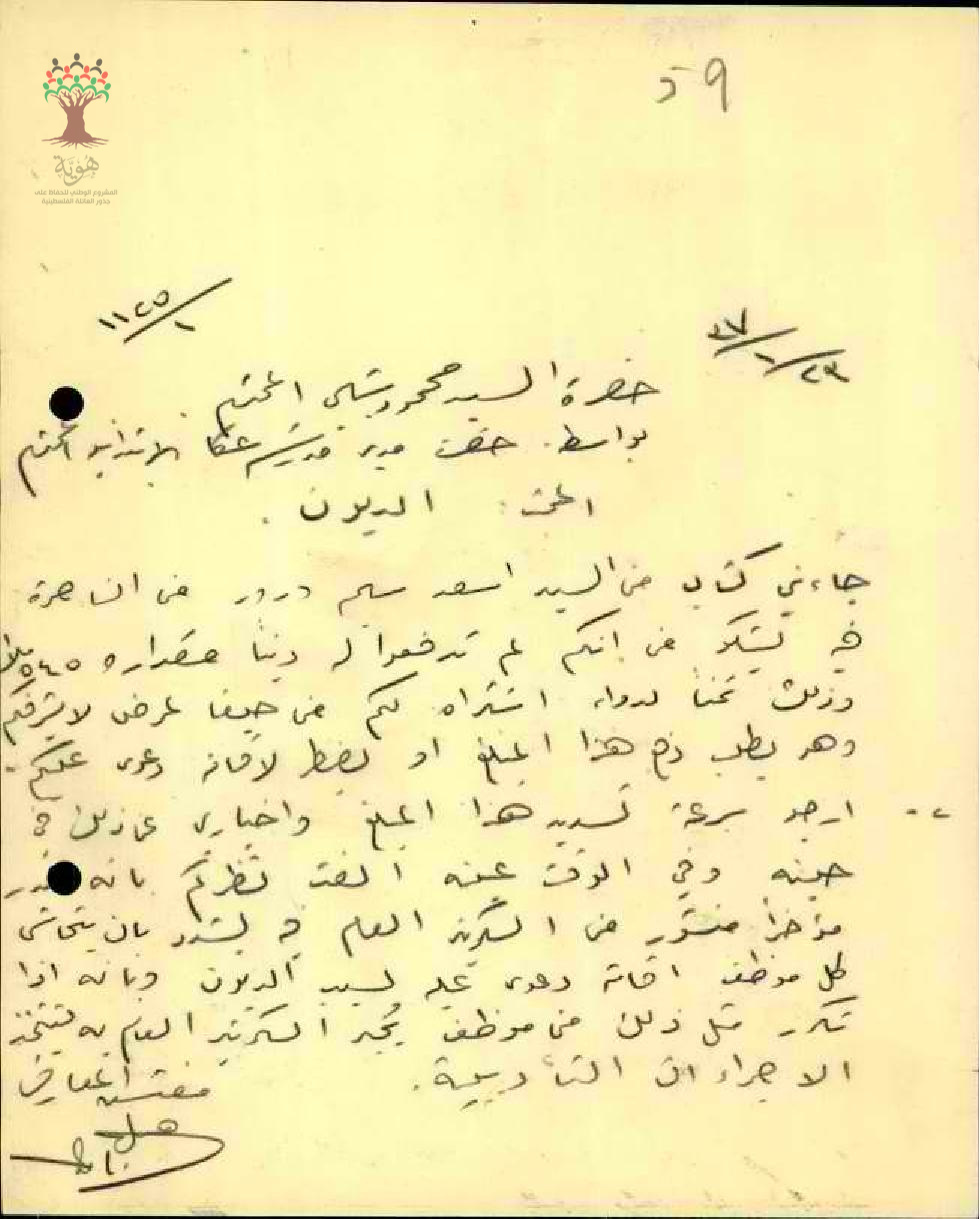 59
هُوِيَّة
المشروع الوطني للحفاظ على
جذور العائلة الفلسطينية
١١٢٥/١
٢٣/١/٣٧
حضرة السيد محمود المحترم
بواسطة حضرة مدير مدرسة عكا الابتدائية المحترم
الديون
جاءني كتاب من السيد اسعد سليم درور من الناصرة
فيه يشكو من انكم لم تدفعوا له دينا مقداره ٥٤٥ ملا
وذلك ثمنا لدواء اشتراه لكم من حيفا لمرض لا يشرفكم
وهو يطلب دفع هذا المبلغ او يضطر لاقامة دعوى عليكم.
٢- ارجو سرعة تسديد هذا المبلغ واخباري عن ذلك في
حينه وفي الوقت عينه الفت نظركم بانه صدر
مؤخرا منشور من السكرتير العام فيه يشدد بان يتحاشى
كل موظف اقامة دعوى عليه لسبب الديون وبانه اذا
تكرر مثل ذلك من موظف يُجبر السكرتير العام بان يتخذ
الاجراءات التأديبية.
مفتش المعارف